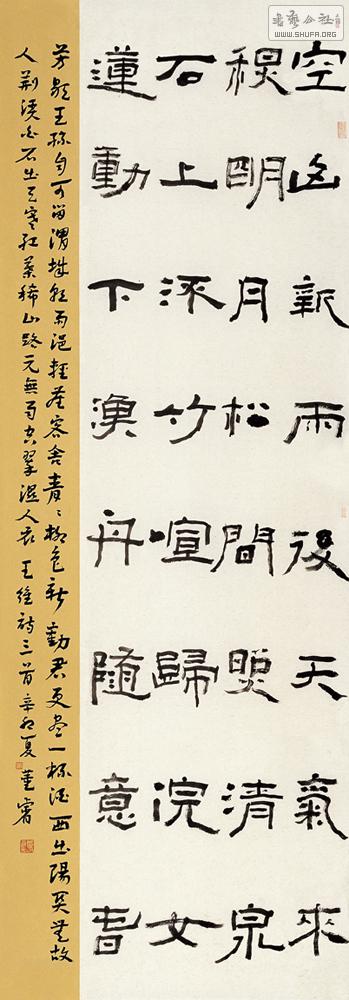 書藝公社
WWW.SHUFA.ORG
空山新雨後天氣來
穐明月松間照清泉
石上流竹喧歸浣女
蓮動下漁舟隨意春
芳歇王孫自可留渭城朝雨浥輕塵客舍青々柳色新勸君更盡一杯酒西出陽關無故
人荊溪白石出天寒紅葉稀山路元無雨空翠濕人衣 王維詩三首辛卯夏董